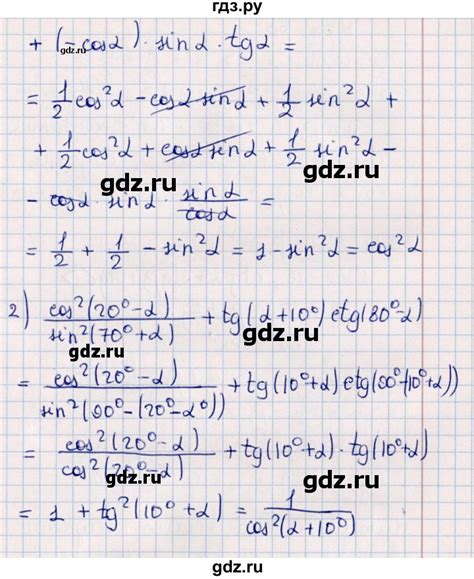 гдз.ру
+ (-cosα) · sinα · tgα =
= 1/2 cos²α - cosα sinα + 1/2 sin²α +
+ 1/2 cos²α + cosα sinα + 1/2 sin²α -
gdz.ru
- cosα · sinα · sinα/cosα =
gdz.ru
= 1/2 + 1/2 - sin²α = 1 - sin²α = cos²α
gdz.ru
2) cos²(20⁰-α)/sin²(70⁰+α) + tg(α+10⁰) ctg(80⁰-α)
gdz.ru
= cos²(20⁰-α)/sin²(90⁰-(20⁰-α⁰)) + tg(10⁰+α) ctg(90⁰-(10⁰+α))
gdz.ru
= cos²(20⁰-α)/cos²(20⁰-α) + tg(10⁰+α) · tg(10⁰+α)
gdz.ru
= 1 + tg²(10⁰+α) = 1/cos²(α+10⁰)
gdz.ru